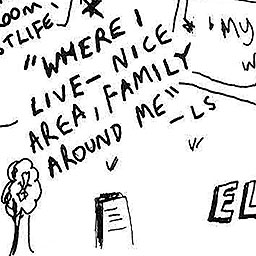 OOM
TLIFE'
"WHERE I
LIVE - NICE
AREA, FAMILY
AROUND ME"
- LS
'MY
W
EL